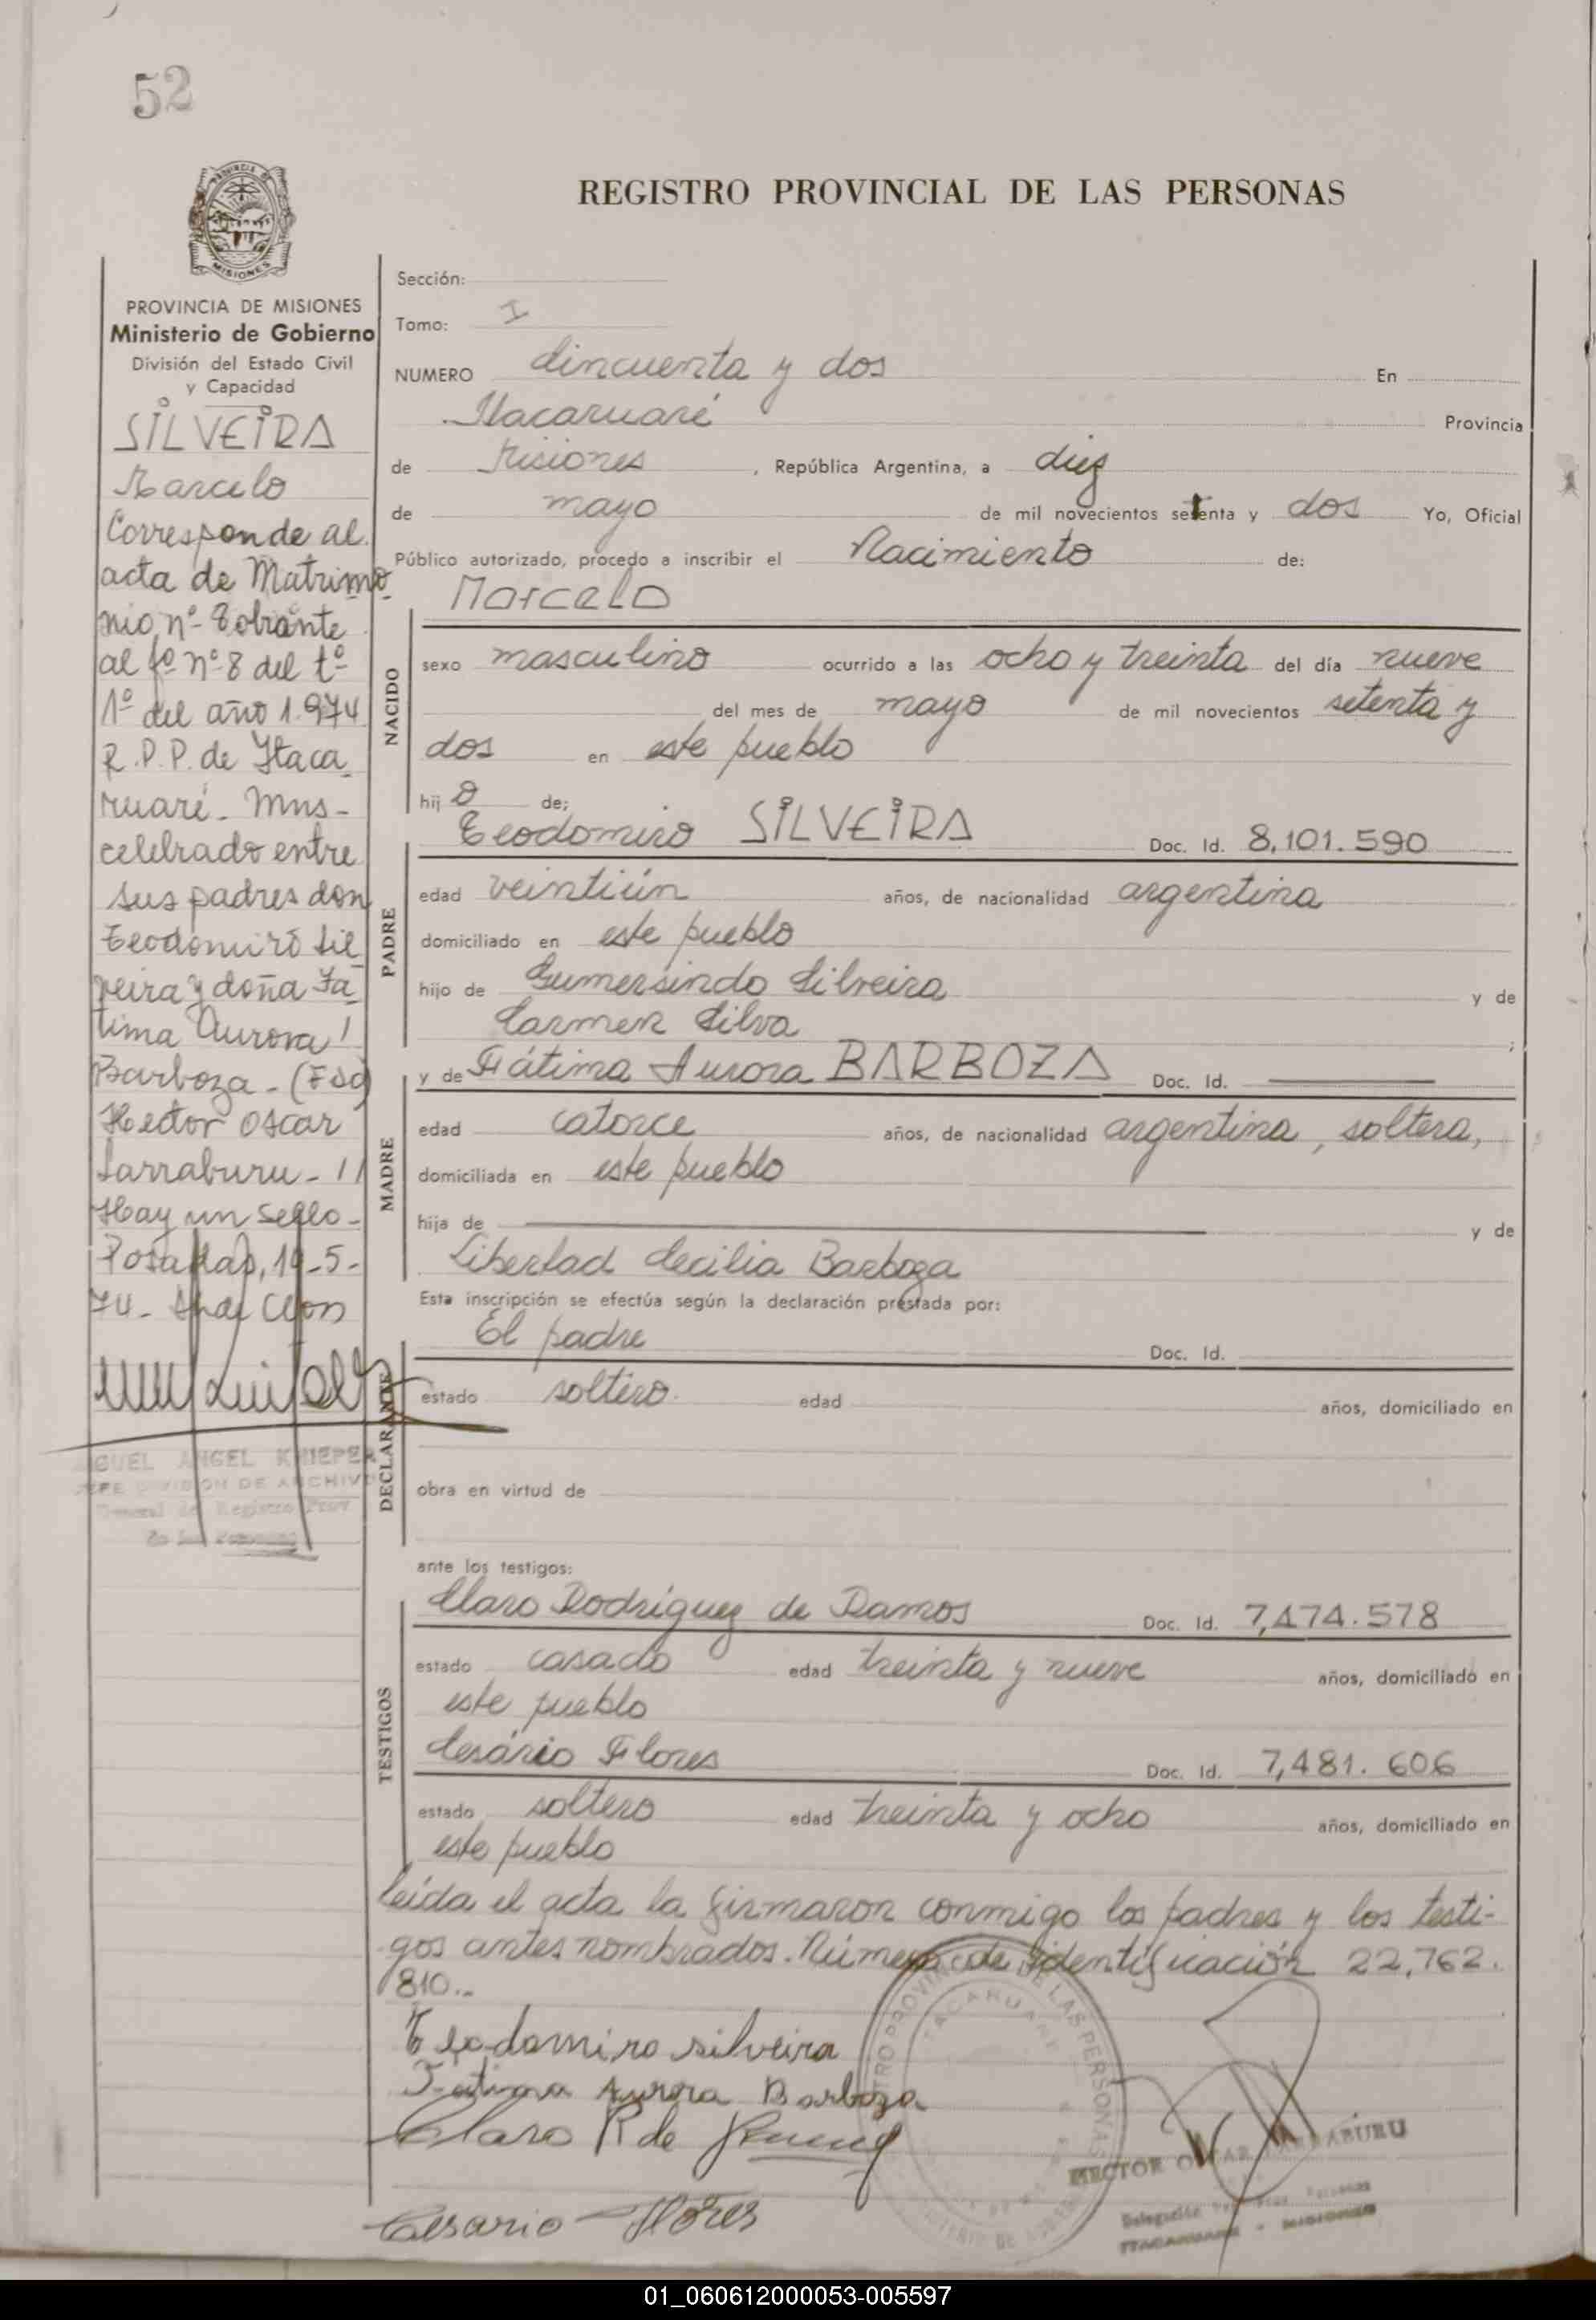 52
REGISTRO PROVINCIAL DE LAS PERSONAS
MISIONES
PROVINCIA DE MISIONES
Ministerio de Gobierno
División del Estado Civil
y Capacidad
SILVEIRA
Marcelo
Corresponde al
acta de Matrimo
nio nº 8 obrante
al fº nº 8 del tº
1º del año 1.974
R.P.P. de Itaca
ruaré - Mns -
celebrado entre
sus padres don
Teodomiro Sil
veira y doña Fa
tima Aurora
Barboza - (Fdo)
Hector Oscar
Larraburu - //
Hay un sello -
Posadas, 19-5-
74 -
MIGUEL ANGEL KNIEPER
JEFE DIVISION DE ARCHIVO
General del Registro Prov.
de las Personas
Sección:
Tomo: I
NUMERO Cincuenta y dos En
Itacaruaré Provincia
de Misiones , República Argentina, a diez
de mayo de mil novecientos setenta y dos Yo, Oficial
Público autorizado, procedo a inscribir el Nacimiento de:
Marcelo
NACIDO
sexo masculino ocurrido a las ocho y treinta del día nueve
del mes de mayo de mil novecientos setenta y
dos en este pueblo
hijo de:
PADRE
Teodomiro SILVEIRA Doc. Id. 8,101.590
edad veintiún años, de nacionalidad argentina
domiciliado en este pueblo
hijo de Gumersindo Silveira y de
Carmen Silva ;
MADRE
y de Fátima Aurora BARBOZA Doc. Id.
edad catorce años, de nacionalidad argentina, soltera,
domiciliada en este pueblo
hija de y de
Libertad Cecilia Barboza
Esta inscripción se efectúa según la declaración prestada por:
DECLARANTE
El padre Doc. Id.
estado soltero edad años, domiciliado en
obra en virtud de
ante los testigos:
TESTIGOS
Claro Rodríguez de Ramos Doc. Id. 7,474.578
estado casado edad treinta y nueve años, domiciliado en
este pueblo
Cesário Flores Doc. Id. 7,481.606
estado soltero edad treinta y ocho años, domiciliado en
este pueblo
leída el acta la firmaron conmigo los padres y los testi-
gos antes nombrados. Número de identificación 22,762.
810..
Teodomiro silveira
Fatima Aurora Barboza
Claro R de
Cesario Flores
REGISTRO PROVINCIAL DE LAS PERSONAS
ITACARUARE
HECTOR OSCAR LARRABURU
ITACARUARE - MISIONES
01_060612000053-005597